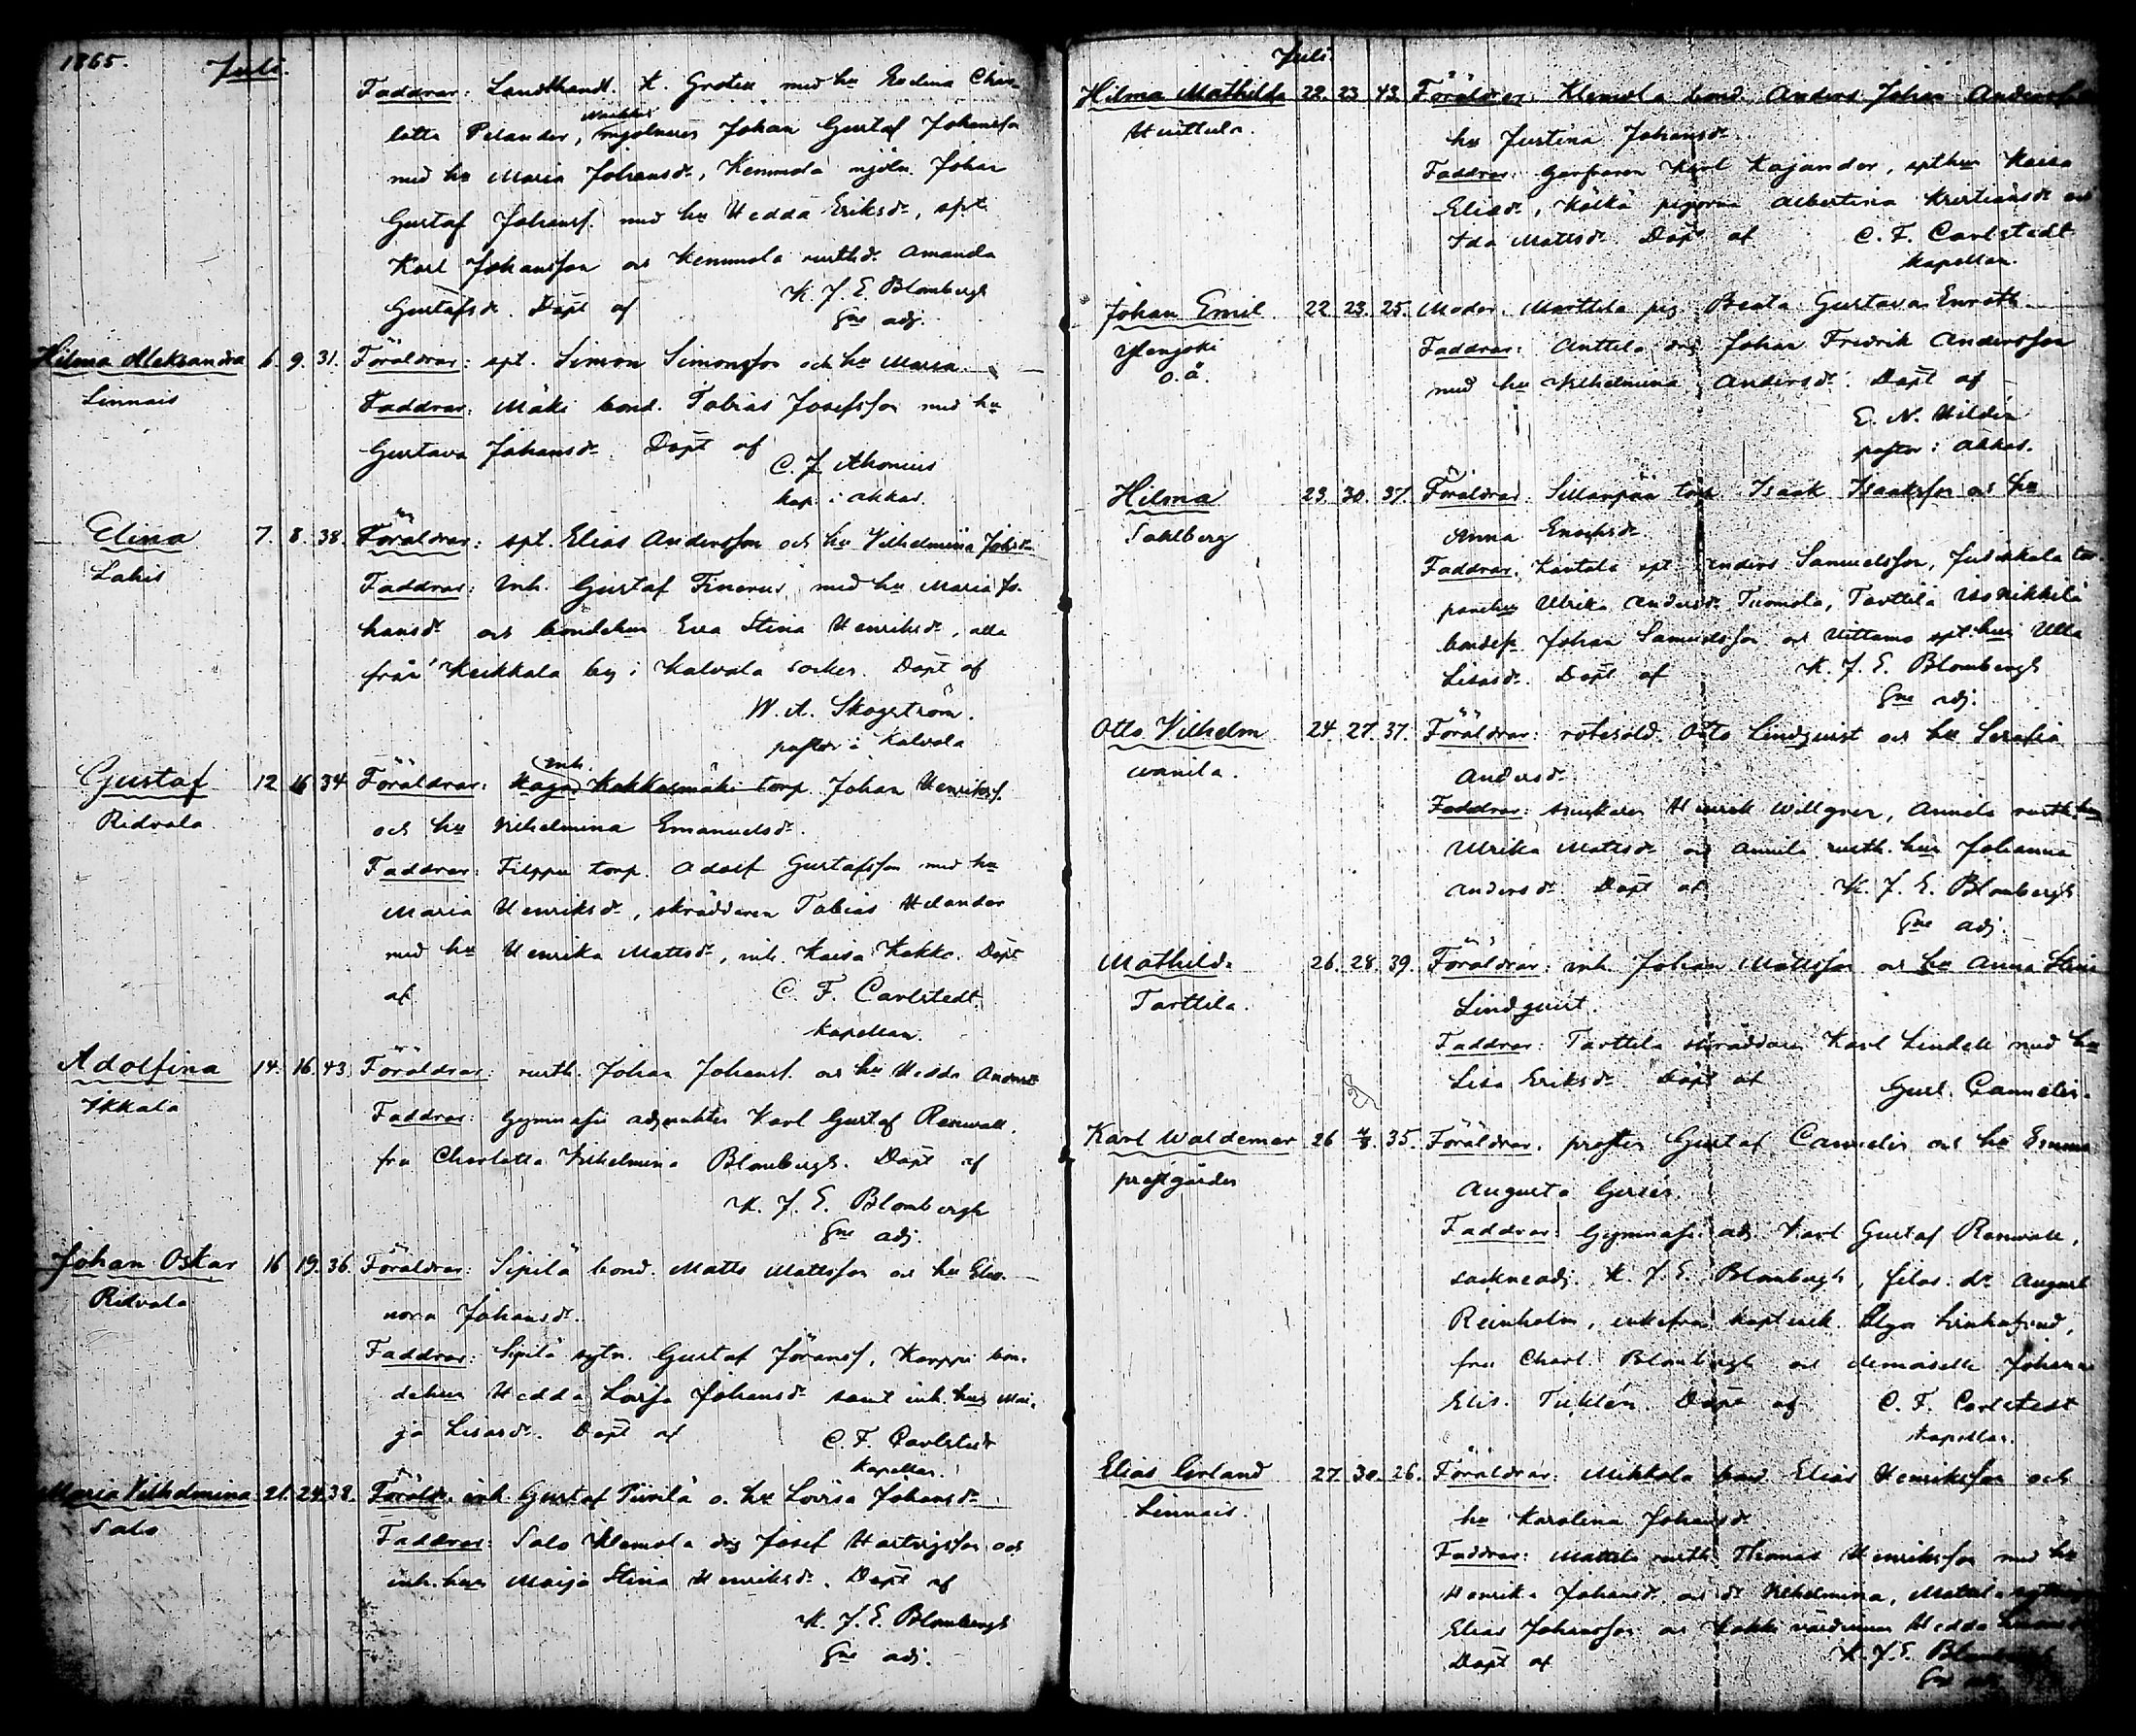 1865. Juli.
Faddrar: Landthandl. K. Groten med hu Evelina Char-
lotta Pelander, mjölnaren Johan Gustaf Johansson
med hu Maria Johansdr, Kemmola mjöln. Johan
Gustaf Johanss. med hu Hedda Eriksdr, spt.
Karl Johansson och Kemmola rusthdr. Amanda
Gustafsdr. Döpt af K. J. E. Blombergh
Sne adj.
Hilma Aleksandra 6. 9. 31. Föräldrar: spt. Simon Simonsson och hu Maria.
Linnais Faddrar: Mäki bond. Tobias Josefsson med hu
Gustava Johansdr. Döpt af
C. J. Ahonius
kap. i Akkas.
Elina 7. 8. 38. Föräldrar: spt. Elias Andersson och hu Vilhelmina Johsdr
Lahis Faddrar: Inh. Gustaf Finerus, med hu Maria Jo-
hansdr och bondehun Eva Stina Henriksdr, alla
från Keikkala by i Kalvola socken. Döpt af
W. A. Skogström.
pastor i Kalvola
Gustaf 12 16 34 Föräldrar: inh. Kakkasmäki torp. Johan Henrikss.
Ridvala och hu Vilhelmina Emanuelsdr.
Faddrar: Filppu torp. Adolf Gustafsson med hu
Maria Henriksdr, skräddaren Tobias Helander
med hu Henrika Mattsdr, inh. Kaisa Kakko. Döpt
af C. F. Carlstedt
Kapellan.
Adolfina 14. 16. 43. Föräldrar: rusth. Johan Johanss. och hu Hedda Andersdr
Ikkala Faddrar: Gymnasii adjunkten Karl Gustaf Renvall,
fru Charlotta Vilhelmina Blombergh. Döpt af
K. J. E. Blombergh
Sne adj.
Johan Oskar 16 19. 36. Föräldrar: Sipilä bond. Matts Mattsson och hu Eleo-
Ridvala nora Johansdr.
Faddrar: Sipilä sytn. Gustaf Jöranss, Karppi bon-
dehun Hedda Lovisa Johansdr samt inh. hun Mai-
ja Lisasdr. Döpt af C. F. Carlstedt
Kapellan.
Maria Vilhelmina 21. 24. 38. Föräldr. inh. Gustaf Piirilä o. hu Lovisa Johansdr
Salo Faddrar: Salo Klemola drg Josef Hartvigsson och
inh. hun Maija Stina Henriksdr. Döpt af
K. J. E. Blombergh
Sne adj.
Juli.
Hilma Mathilda 22. 23 43. Föräldrar: Klemola bond. Anders Johan Andersson
Huittula. hu Justina Johansdr.
Faddrar: Garfvaren Karl Kajander, spthun Kaisa
Eliasdr, Kälkä pigorna Albertina Kristiansdr och
Ida Mattsdr. Döpt af C. F. Carlstedt
Kapellan.
Johan Emil 22. 23. 25. Moder. Marttila pig. Beata Gustava Enroth
o. ä. Faddrar: Anttila drg Johan Fredrik Andersson
med hu Vilhelmina Andersdr. Döpt af
E. N. Hildén
pastor i Akkas.
Hilma 23. 30. 37. Föräldrar. Sillanpää torp. Isaak Isaaksson och hu
Sahlberg Anna Enochsdr.
Faddrar. Kantala spt. Anders Samuelsson, Jutikkala tor-
parehu Ulrika Andersdr. Tuomola, Tarttila Iso Nikkilä
bondes. Johan Samuelsson och Uittamo spt. hun Ulla
Lisasdr. Döpt af K. J. E. Blombergh
Sne adj.
Otto Vilhelm 24. 27. 37. Föräldrar: rotesold. Otto Lindquist och hu Serafia
Annila. Andersdr.
Faddrar: snickaren Henrik Willgren, Annila rusth. hun
Ulrika Mattsdr och Annila rusth. hun Johanna
Andersdr. Döpt af K. J. E. Blombergh
Sne adj.
Mathilda 26. 28. 39. Föräldrar: inh. Johan Mattsson och hu Anna Stina
Tarttila. Lindquist.
Faddrar: Tarttila skräddaren Karl Lindell med hu
Lisa Eriksdr. Döpt af Gust. Cannelin.
Karl Waldemar 26 4/8. 35. Föräldrar. prosten Gustaf Cannelin och hu Emma
prestgården Augusta
Faddrar: Gymnasii adj. Karl Gustaf Renvall,
sockneadj. K. J. E. Blombergh, filos. dr. August
Reinholm, enkefru Olga
fru Charl. Blombergh och demoiselle Johanna
Elis. Döpt af C. F. Carlstedt
Kapellan.
Elias Erland 27. 30. 26. Föräldrar: Mikkola bond. Elias Henriksson och
Linnais. hu Karolina Johansdr
Faddrar: Mattila rusth. Thomas Henriksson med hu
Henrika Johansdr och dr Vilhelmina, Mattila
Elias Johansson och Kokki värdinnan Hedda
Döpt af K. J. E. Blombergh
Sne adj.